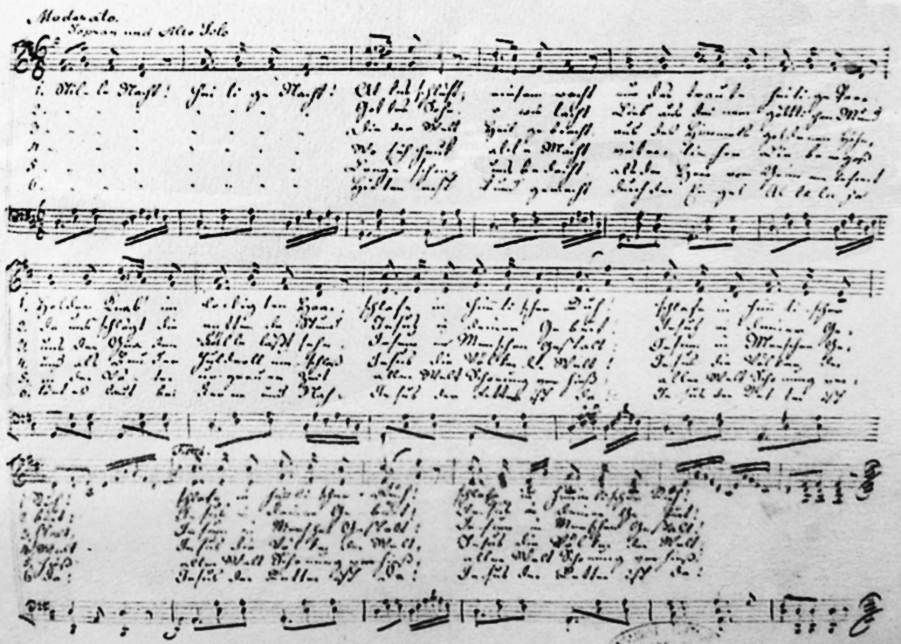 Moderato.
Sopran und Alto Solo
1. Stil le Nacht! Hei li ge Nacht! Al les schläft; einsam wacht nur das traute heilige Paar.
2. Got tes Sohn, o wie lacht Lieb aus dei nem göttlichen Mund
3. Die der Welt Heil gebracht, aus des Himmels goldenen Höhn,
4. Wo sich heut alle Macht
5. Lange schon uns bedacht, als der Herr vom
6. Hirten erst kund gemacht durch der Engel Al le lu ja
1. Holder Knab im lockigten Haar, schlafe in himmlischer Ruh! schlafe in himmlischer
2. da uns schlägt die rettende Stund. Jesus in deiner Geburt! Jesus in deiner Ge
3. uns der Gnaden Fülle läßt sehn, Jesum in Menschengestalt! Jesum in Menschen Ge
4. und als Bruder huldvoll umschloß Jesus die Völker der Welt! Jesus die Völker der
5. aller Welt Schonung verhieß! aller Welt Schonung ver
6. Jesus der Retter ist da! Jesus der Retter ist
1. Ruh! schlafe in himmlischer Ruh! schlafe in himmlischer Ruh!
2. burt! Jesus in deiner Geburt! Jesus in deiner Geburt!
3. stalt! Jesum in Menschengestalt! Jesum in Menschengestalt!
4. Welt Jesus die Völker der Welt, Jesus die Völker der Welt!
5. hieß! aller Welt Schonung verhieß! aller Welt Schonung verhieß!
6. da! Jesus der Retter ist da! Jesus der Retter ist da!